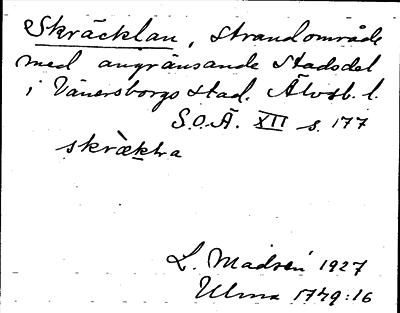 Skräcklan, strandområde
med angränsande stadsdel
i Vänersborgs stad. Älvsb. l.
S.O.Ä. XII s. 177
skræ̀kla
L. Madsén 1927
Ulma 1749:16